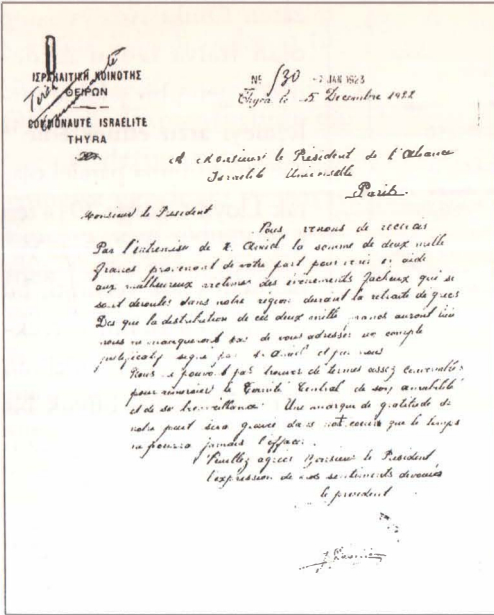 ΙΣΡΑΗΛΙΤΙΚΗ ΚΟΙΝΟΤΗΣ
ΘΕΙΡΩΝ
COMMUNAUTÉ ISRAÉLITE
THYRA
No 130 -2 JAN 1923
Thyra le 15 Decembre 1922
A Monsieur le Président de l'Alliance
Israelite Universelle
Paris.
Monsieur le President
Nous venons de recevoir
Par l'entremise de la somme de deux mille
francs provenant de votre part pour venir en aide
aux malheureux victimes des évènements facheux qui se
sont deroulés dans notre région durant la retraite de grecs
Des que la distribution de ces deux mille francs auront lieu
nous ne manquerons pas de vous adresser un compte
justificatif signé par et par nous
Nous ne pouvons pas trouver de termes assez convenables
pour remercier le Comité Central de son amabilité
et de sa bienveillance. Une marque de gratitude de
notre part sera gravée dans nos coeurs que le temps
ne pourra jamais l'effacer.
Veuillez agréer Monsieur le Président
l'expression de nos sentiments devoués
le president